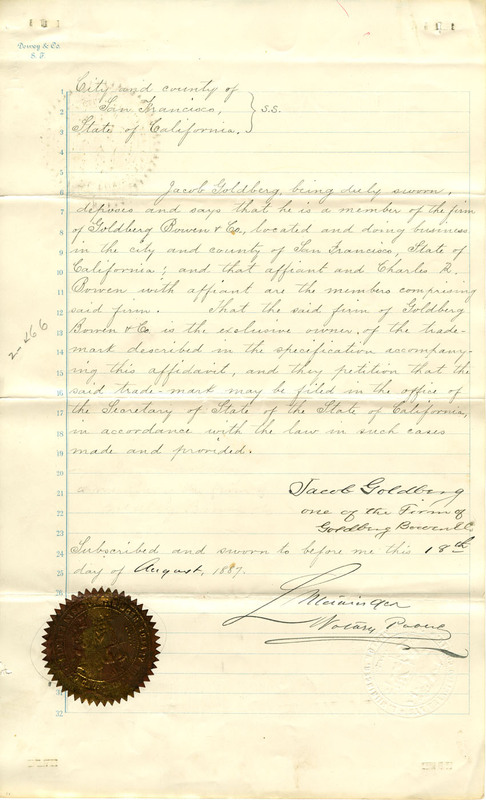 Dewey & Co.
S. F.
City and county of
San Francisco,
State of California.
S.S.
Jacob Goldberg, being duly sworn,
deposes and says that he is a member of the firm
of Goldberg Bowen & Co., located and doing business
in the city and county of San Francisco, State of
California; and that affiant and Charles R.
Bowen with affiant are the members comprising
said firm. That the said firm of Goldberg
Bowen & Co. is the exclusive owner, of the trade-
mark described in the specification accompany-
ing this affidavit, and they petition that the
said trade-mark may be filed in the office of
the Secretary of State of the State of California,
in accordance with the law in such cases
made and provided.
Jacob Goldberg
one of the Firm of
Goldberg Bowen & Co.
Subscribed and sworn to before me this 18th
day of August, 1887.
Notary Public